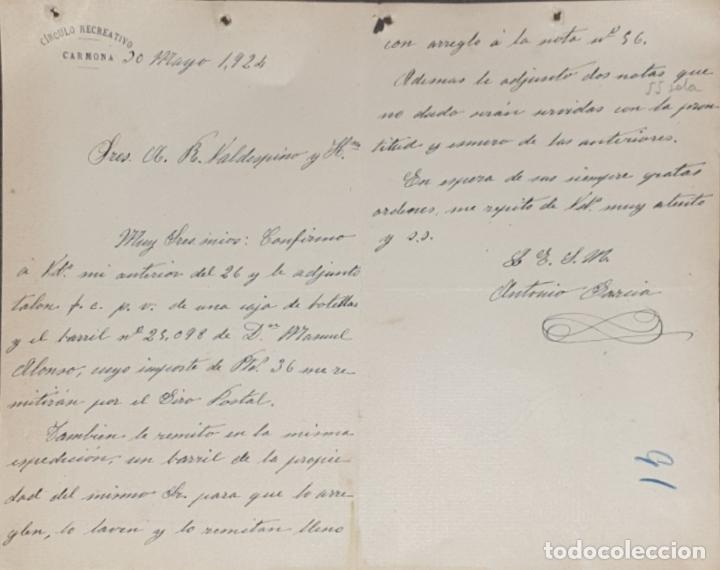 CÍRCULO RECREATIVO
CARMONA
30 Mayo 1,924
Sres. A. R. Valdespino y Hnos
Muy Sres. mios: Confirmo
á Vds. mi anterior del 26 y le adjunto
talon f. c. p. v. de una caja de botellas
y el barril nº 25,098 de Dn Manuel
Alonso, cuyo importe de Pts. 36 me re-
mitirán por el Giro Postal.
Tambien le remito en la misma
expedición, un barril de la propie
dad del mismo Sr. para que lo arre-
glen, lo laven y lo remitan lleno
con arreglo á la nota nº 56.
Ademas le adjunto dos notas que
no dudo serán servidas con la pron
titud y esmero de las anteriores.
En espera de sus siempre gratas
ordenes, me repito de Vds. muy atento
y s.s.
E. S. M.
Antonio Garcia
91
todocoleccion